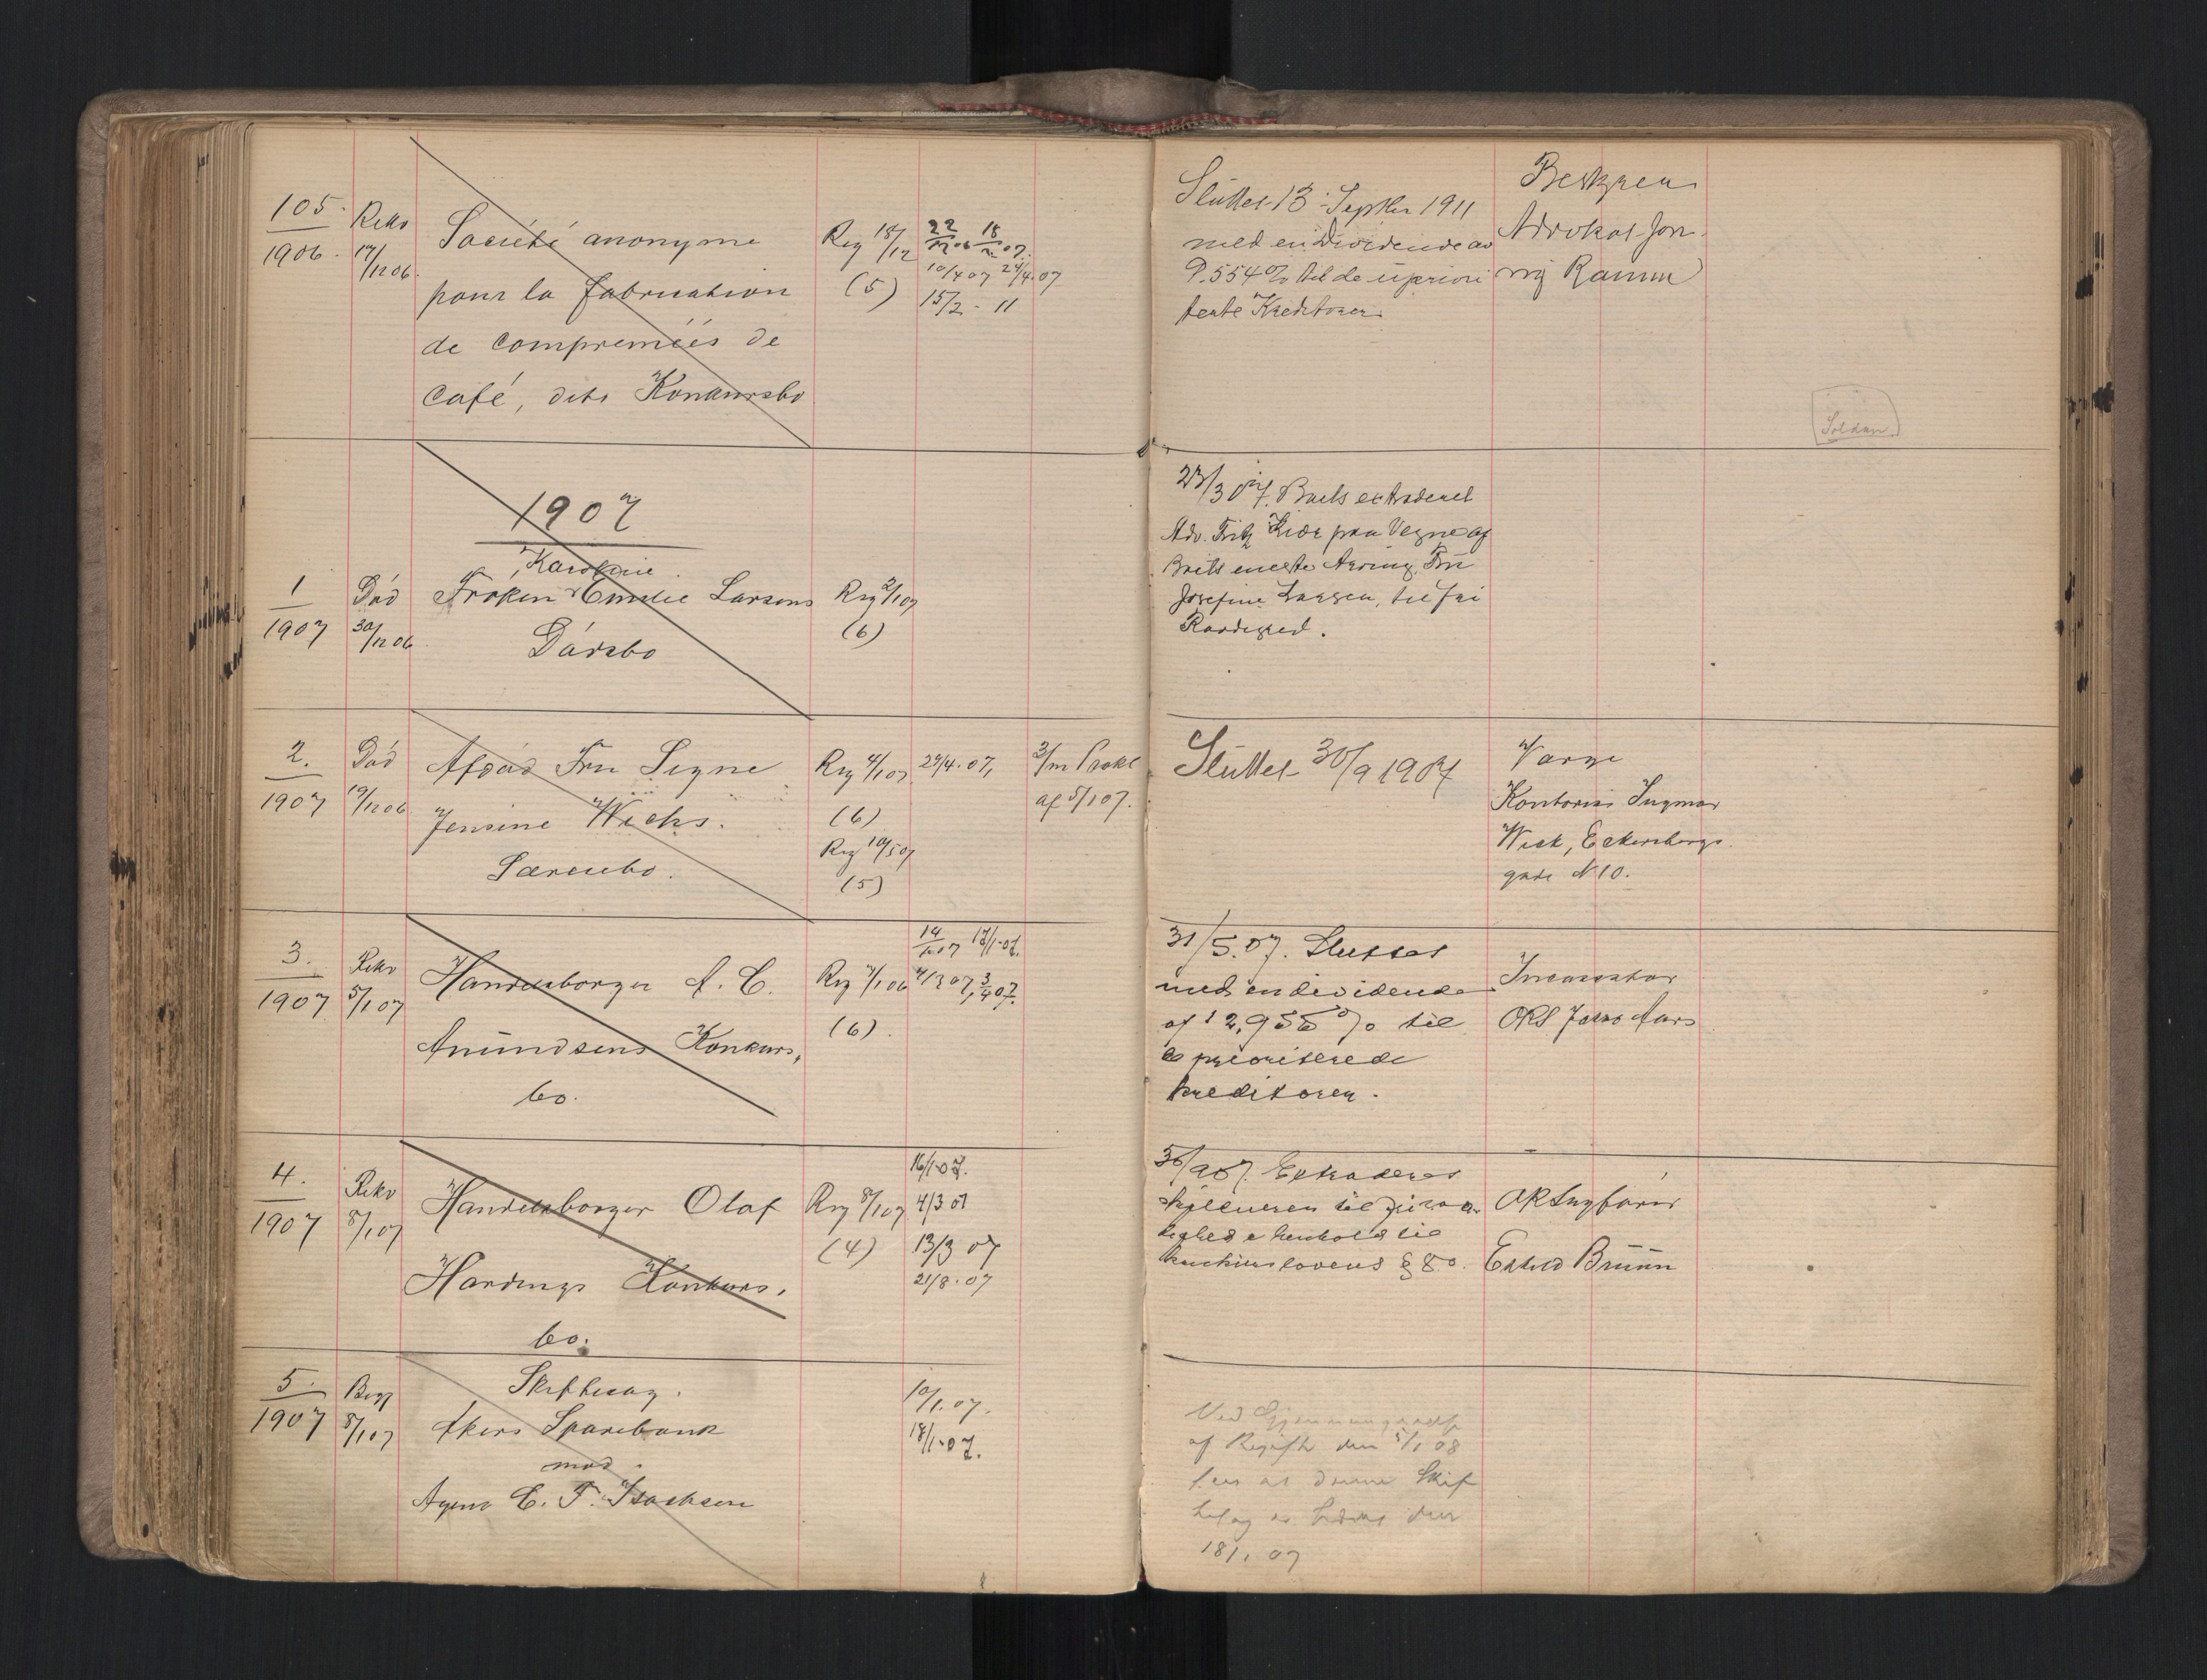 105.
1906.
Rekv
17/12 06.
Société anonyme
pour la fabrication
de compremées de
café, dets Konkursbo
Reg 18/12
(5)
22/12 06 18/2 07.
10/4 07 24/4 07
15/2 - 11
Sluttet 13 Septbr 1911
med en Dividende av
9.554 % til de upriori
terte Kreditorer.
Bestyrer
Advokat Jon
Ramm
Soldan
1907
1
1907
Död
30/12 06
Karoline
Fröken Emilie Larsens
Dödsbo
Reg 2/1 07
(6)
23/3 07. Boets extraderet
Adv. Fritz paa Vegne af
Boets eneste Arving, Fru
Josefine Larsen, til fri
Raadighed.
2.
1907
Död
19/12 06
Afdöd Fru Signe
Jensine Wicks.
Særeiebo.
Reg 4/1 07
(6)
Reg 10/5 07
(5)
24/4. 07,
3/m Prokl
af 5/1 07.
Sluttet 30/9 1907
Værge
Kontorist Ingmar
Wick, Eckersbergs
gade N 10.
3.
1907
Rekv
5/1 07
Handelsborger A. C.
Amundsens Konkurs,
bo.
Reg 7/1 06
(6).
14/1 07 17/1-07.
4/3 07, 3/4 07.
31/5. 07. Sluttet
med en dividende
af 12,955 % til
prioriterede
kreditorer.
Incassator
ORS Jakob Aars
4.
1907
Rekv
8/1 07
Handelsborger Olaf
Hardings Konkurs,
bo.
Reg 8/1 07
(4)
16/1-07.
4/3 07
13/3 07
21/8. 07
30/9 07. Extraderes
til fri raa-
lighed i henhold til
konkurslovens § 80.
OR Sagförer
Eivind Bruun
5.
1907
Beg
8/1 07
Skiftesag.
Akers Sparebank
mod
Agent C. F. Isachsen
10/1. 07.
18/1-07.
Ved Gjennemgaaelse
af Regist den 5/1 08
sees at denne Skif
tesag er hævet den
18/1 07